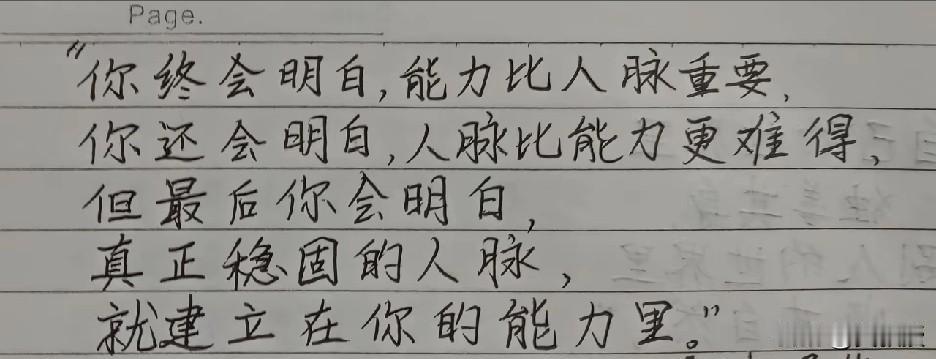 Page.
“你终会明白,能力比人脉重要,
你还会明白,人脉比能力更难得,
但最后你会明白,
真正稳固的人脉,
就建立在你的能力里。”